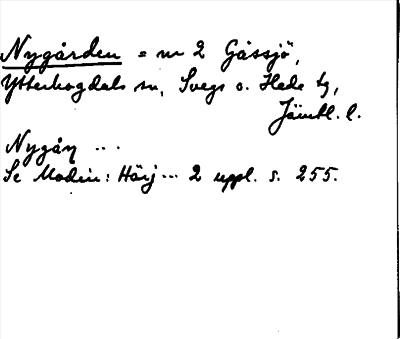 Nygården = nr 2 Gåssjö,
Ytterhogdals sn, Svegs o. Hede tg,
Jämtl. l.
Nygåṇ ...
Se Modin: Härj... 2 uppl. s. 255.